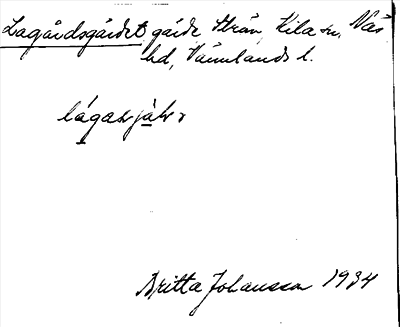 Lagårdsgärdet, gärde, Strån, Kila sn, Näs
hd, Värmlands l.
Britta Johansson 1934